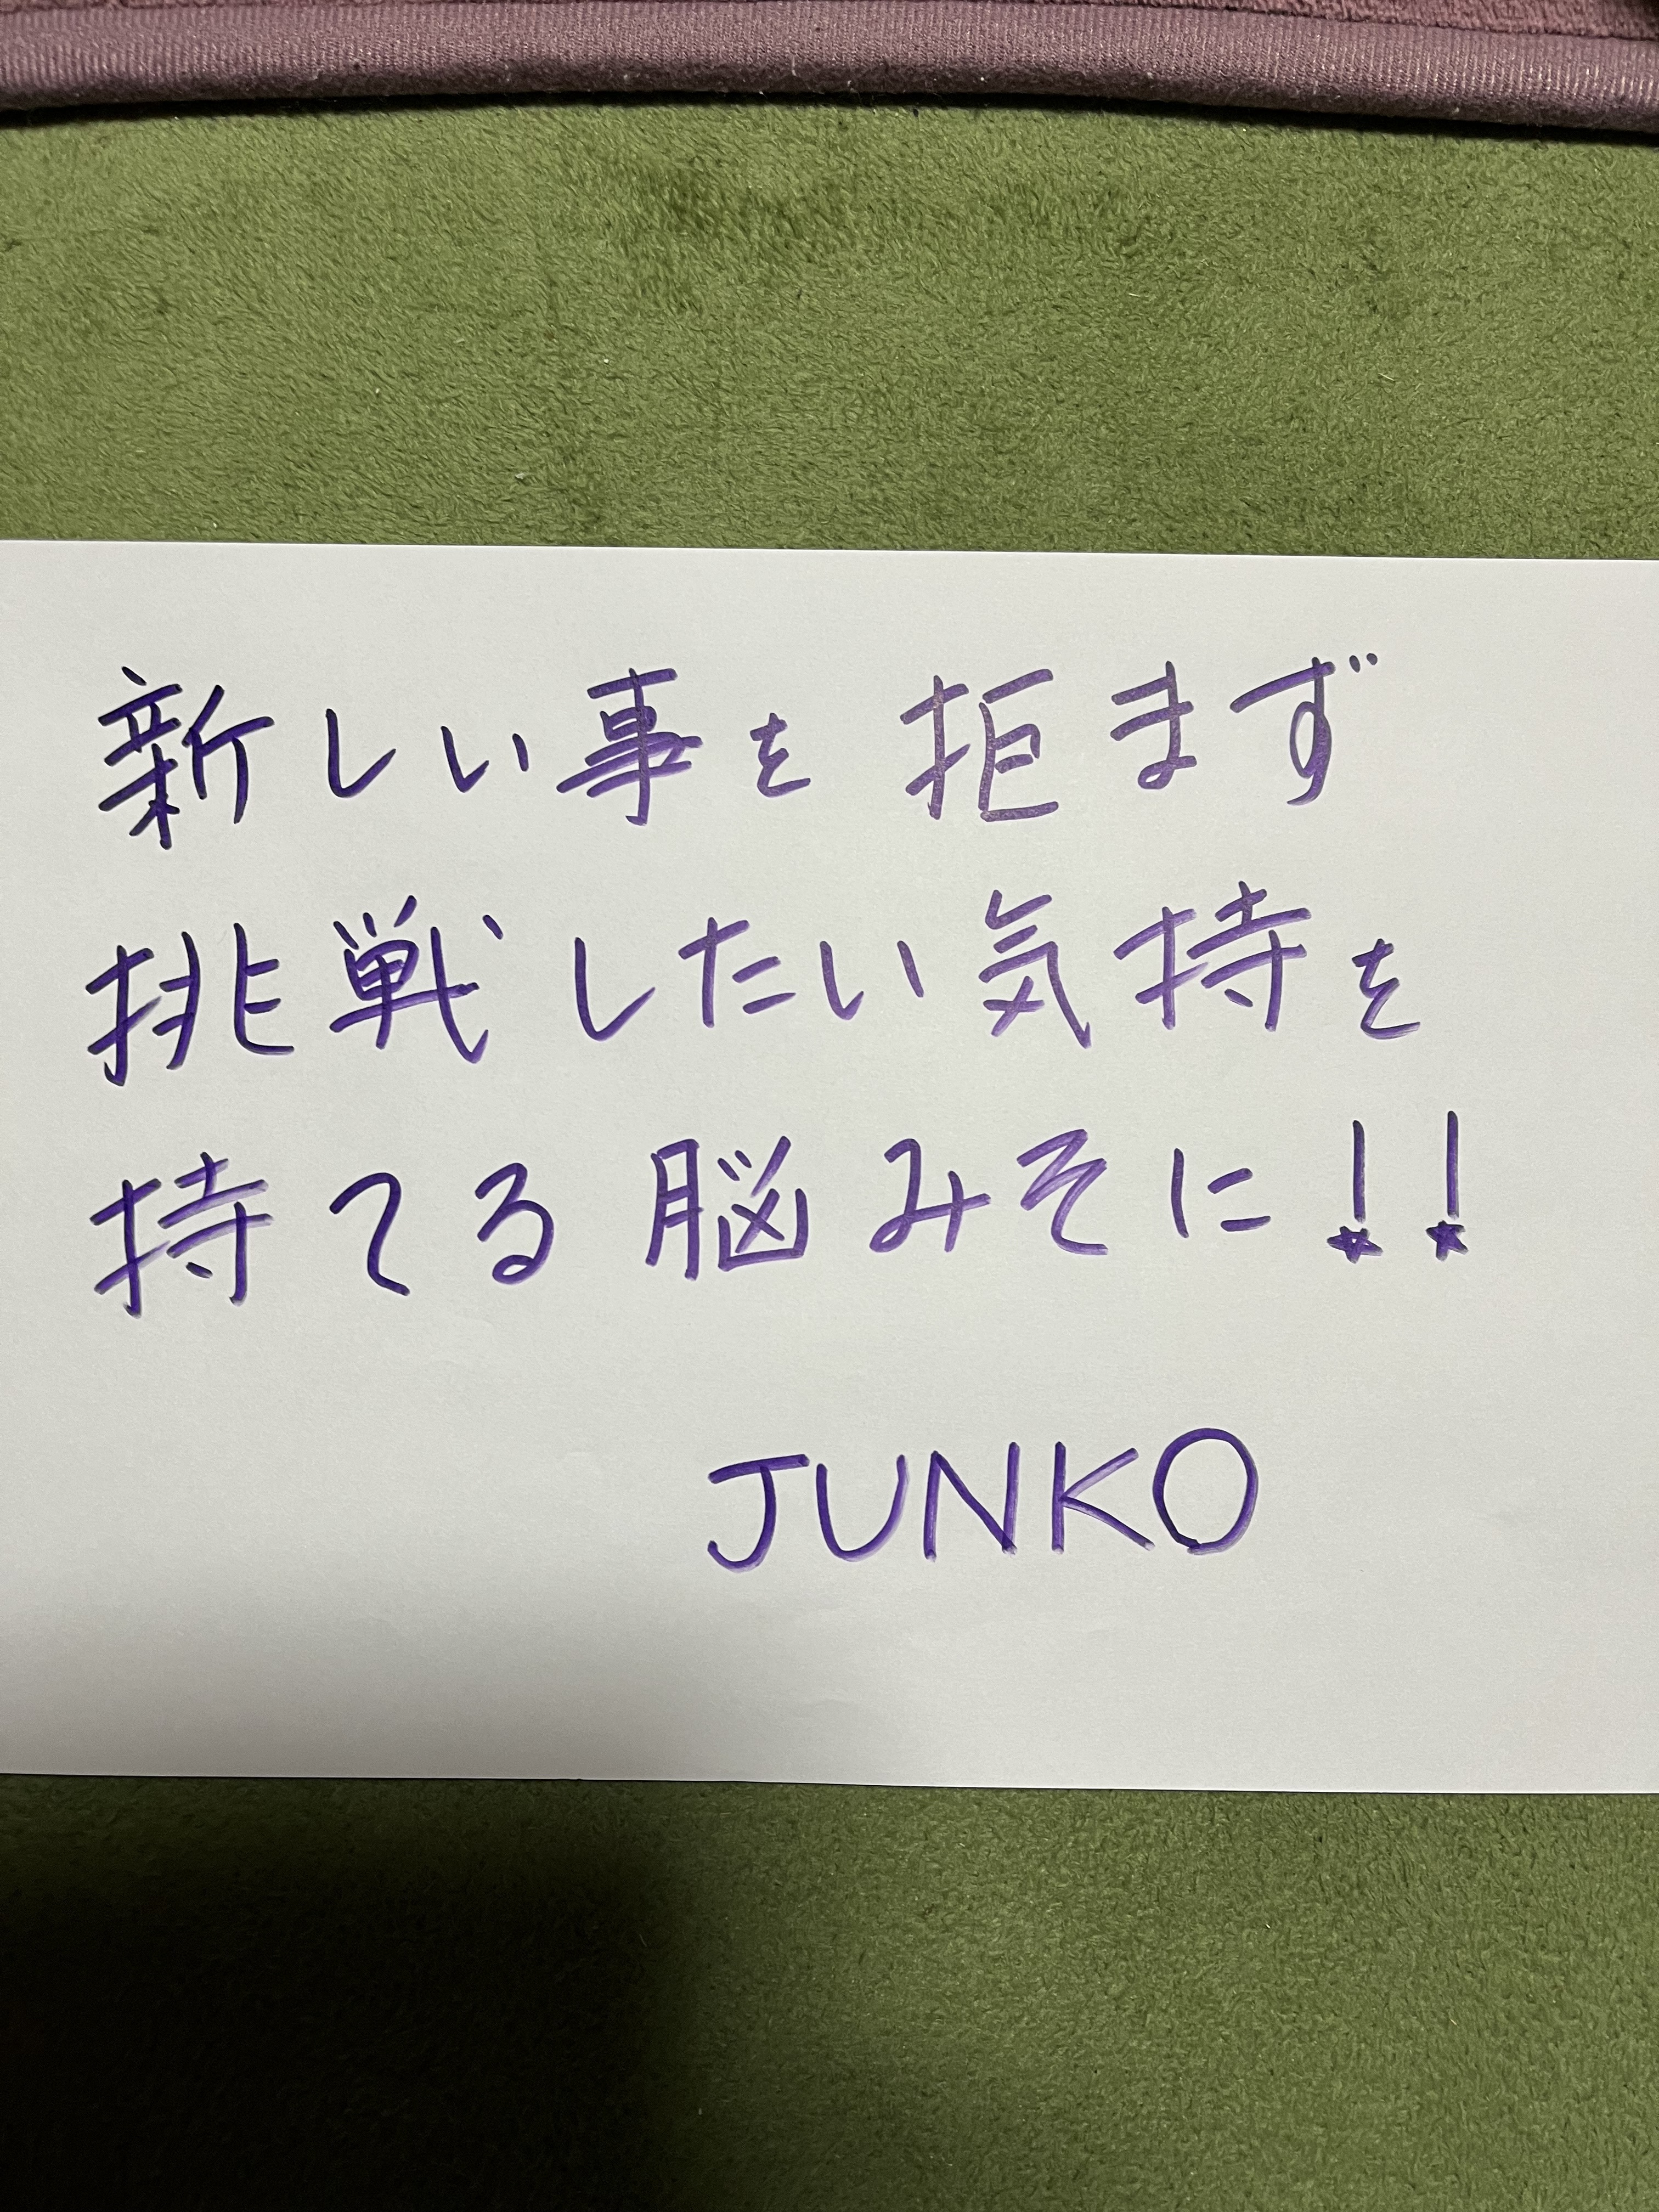 新しい事を拒まず
挑戦したい気持を
持てる脳みそに!!
JUNKO